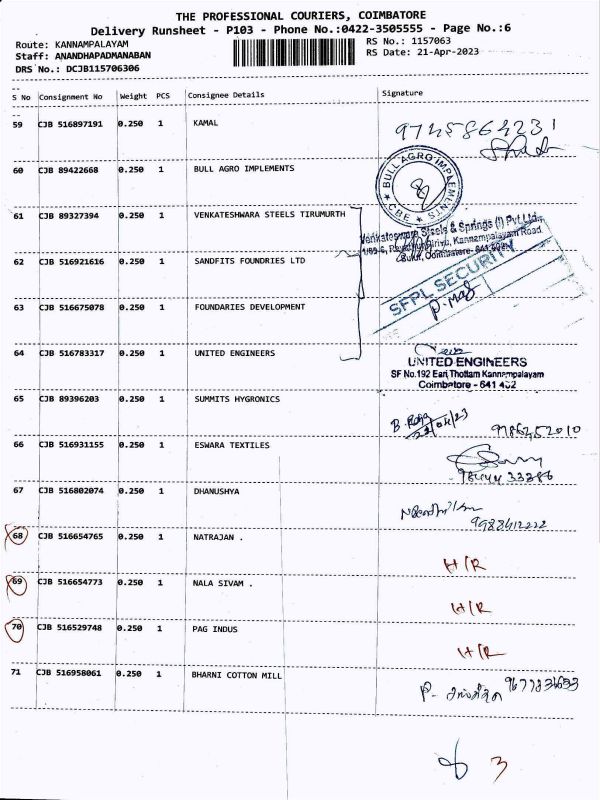 THE PROFESSIONAL COURIERS, COIMBATORE
Delivery Runsheet - P103 - Phone No.:0422-3505555 - Page No.:6
Route: KANNAMPALAYAM
RS No.: 1157063
Staff: ANANDHAPADMANABAN
RS Date: 21-Apr-2023
DRS No.: DCJB115706306
S No Consignment No Weight PCS Consignee Details Signature
59 CJB 516897191 0.250 1 KAMAL
9745864231
60 CJB 89422668 0.250 1 BULL AGRO IMPLEMENTS
BULL AGRO IMPLEMENTS
CBE
61 CJB 89327394 0.250 1 VENKATESHWARA STEELS TIRUMURTH
Venkateswara Steels & Springs (I) Pvt Ltd.,
Kannampalayam Road,
Sulur, Coimbatore-
62 CJB 516921616 0.250 1 SANDFITS FOUNDRIES LTD
SFPL SECURITY
63 CJB 516675078 0.250 1 FOUNDARIES DEVELOPMENT
64 CJB 516783317 0.250 1 UNITED ENGINEERS
UNITED ENGINEERS
SF No.192 Eari Thottam Kannampalayam
Coimbatore - 641 402
65 CJB 89396203 0.250 1 SUMMITS HYGRONICS
B. Roja
9786452010
66 CJB 516931155 0.250 1 ESWARA TEXTILES
67 CJB 516802074 0.250 1 DHANUSHYA
9988412222
68 CJB 516654765 0.250 1 NATRAJAN .
H/R
69 CJB 516654773 0.250 1 NALA SIVAM .
H/R
70 CJB 516529748 0.250 1 PAG INDUS
H/R
71 CJB 516958061 0.250 1 BHARNI COTTON MILL
8 3